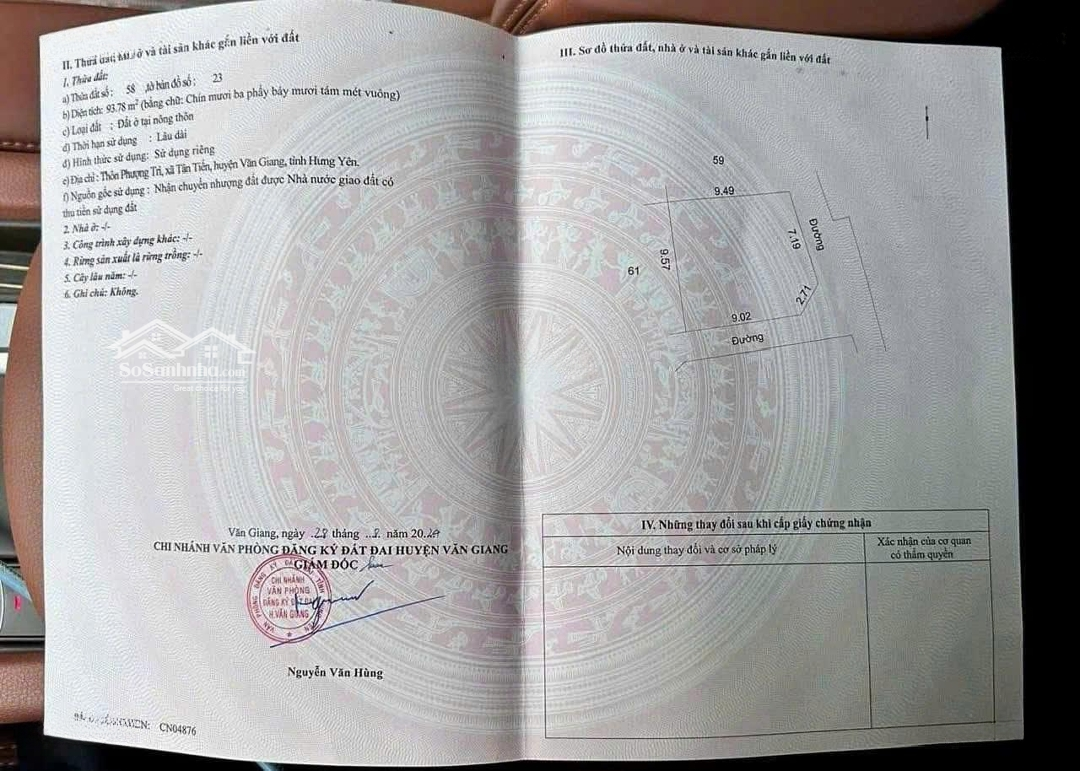 II. Thửa đất, nhà ở và tài sản khác gắn liền với đất
1. Thửa đất:
a) Thửa đất số: 58 ,tờ bản đồ số: 23
b) Diện tích: 93.78 m² (bằng chữ: Chín mươi ba phẩy bảy mươi tám mét vuông)
c) Loại đất : Đất ở tại nông thôn
d) Thời hạn sử dụng : Lâu dài
đ) Hình thức sử dụng: Sử dụng riêng
e) Địa chỉ: Thôn Phượng Trì, xã Tân Tiến, huyện Văn Giang, tỉnh Hưng Yên.
f) Nguồn gốc sử dụng : Nhận chuyển nhượng đất được Nhà nước giao đất có
thu tiền sử dụng đất
2. Nhà ở: -/-
3. Công trình xây dựng khác: -/-
4. Rừng sản xuất là rừng trồng: -/-
5. Cây lâu năm: -/-
6. Ghi chú: Không.
SoSanhnha.com
Văn Giang, ngày 28 tháng 8 năm 2024
CHI NHÁNH VĂN PHÒNG ĐĂNG KÝ ĐẤT ĐAI HUYỆN VĂN GIANG
GIÁM ĐỐC
CHI NHÁNH
VĂN PHÒNG
ĐĂNG KÝ ĐẤT ĐAI
H.VĂN GIANG
Nguyễn Văn Hùng
CN04876
III. Sơ đồ thửa đất, nhà ở và tài sản khác gắn liền với đất
59
9.49
7.19
Đường
9.57
61
2.71
9.02
Đường
IV. Những thay đổi sau khi cấp giấy chứng nhận
Nội dung thay đổi và cơ sở pháp lý
Xác nhận của cơ quan
có thẩm quyền